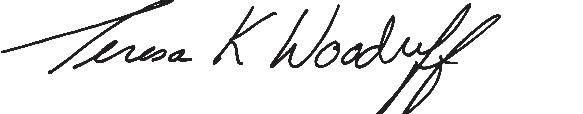 Teresa K Woodruff